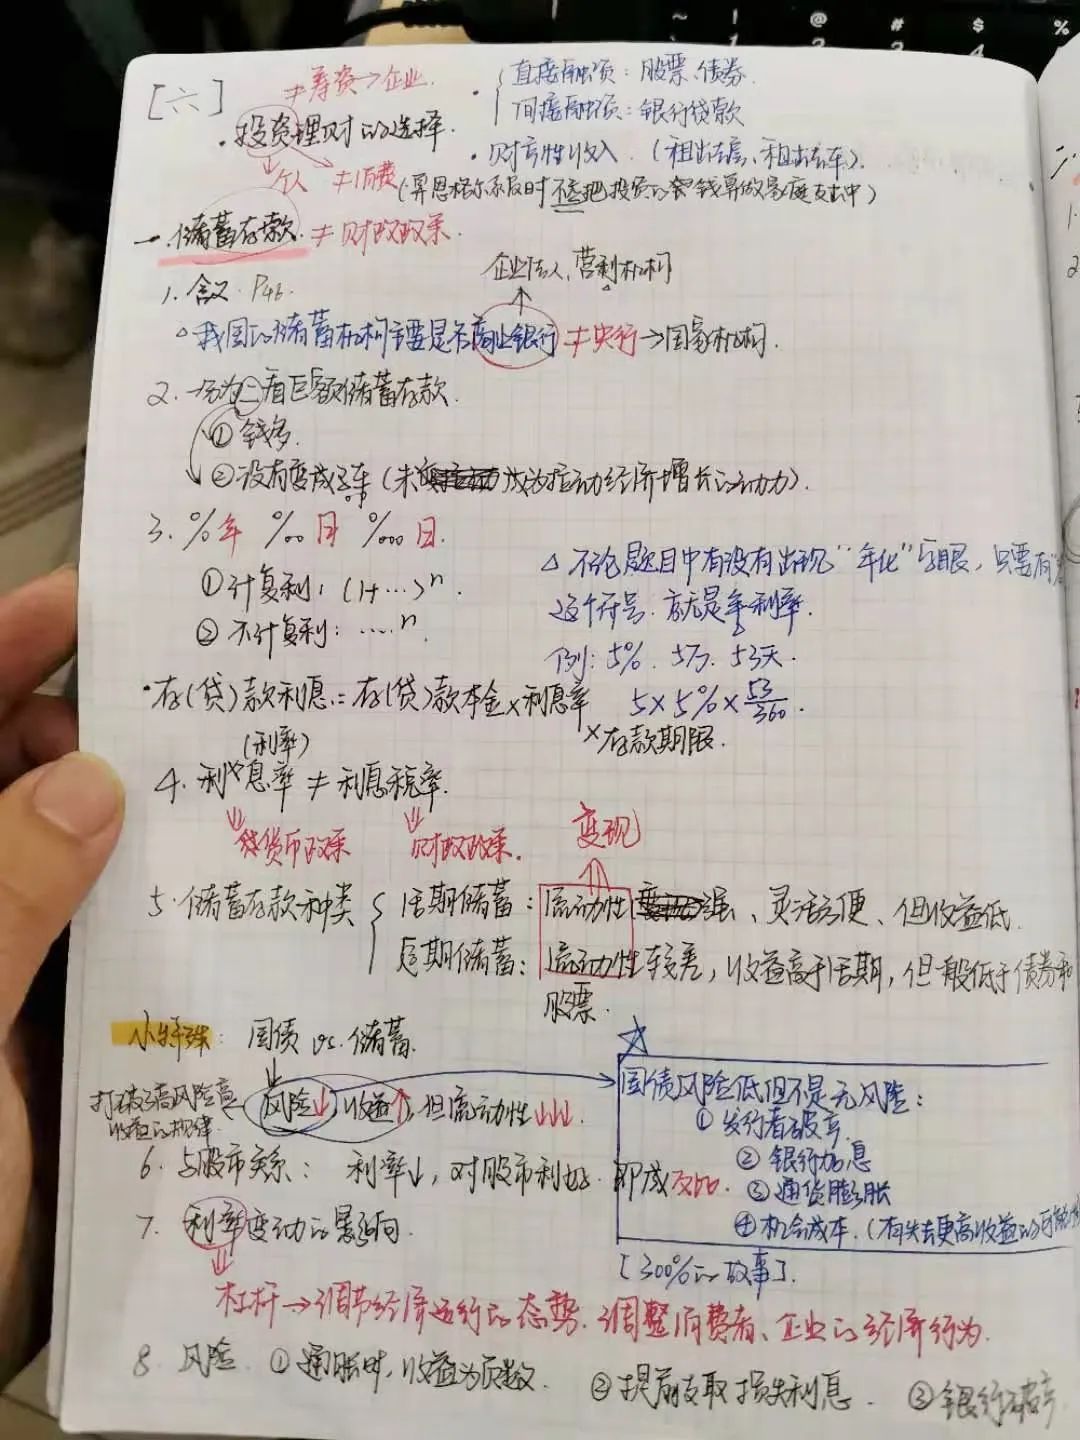 [六] ≠筹资→企业.
· 投资理财的选择.
个人 ≠消费
· { 直接融资: 股票、债券.
间接融资: 银行贷款
· 财产性收入. (租出去房、租出去车).
(算恩格尔系数时不要把投资的钱算做家庭支出中)
一. 储蓄存款. ≠ 财政政策.
1. 含义. P46.
企业法人、营利机构
△ 我国的储蓄机构主要是各商业银行 ≠央行→国家机构.
2. 一分为二看巨额储蓄存款.
① 钱多.
② 没有变成 (未 成为拉动经济增长的动力).
3. % 年 ‰ 月 %000 日.
① 计复利: (1+…)ⁿ.
② 不计复利: ……ⁿ.
△ 不论题目中有没有出现“年化”字眼, 只要有“
这个符号. 就是年利率.
例: 5%. 5万. 53天.
· 存(贷)款利息 = 存(贷)款本金×利息率
×存款期限.
5×5%×53/360.
(利率)
4. 利息率 ≠ 利息税率.
货币政策 财政政策.
变现
5. 储蓄存款种类 { 活期储蓄: 流动性强、灵活方便、但收益低.
定期储蓄: 流动性较差, 收益高于活期, 但一般低于债券和
股票.
小特殊: 国债 vs. 储蓄.
打破了高风险高
收益的规律.
风险↓ 收益↑, 但流动性↓↓↓.
☆
国债风险低但不是无风险:
① 发行者破产
② 银行加息
③ 通货膨胀
④ 机会成本. (有失去更高收益的可能性
[300%的故事].
6. 与股市关系: 利率↓, 对股市利好. 即成反比.
7. 利率变动的影响.
杠杆→调节经济运行的态势. 调整消费者、企业的经济行为.
8. 风险. ① 通胀时, 收益为负数. ② 提前支取损失利息. ③ 银行破产